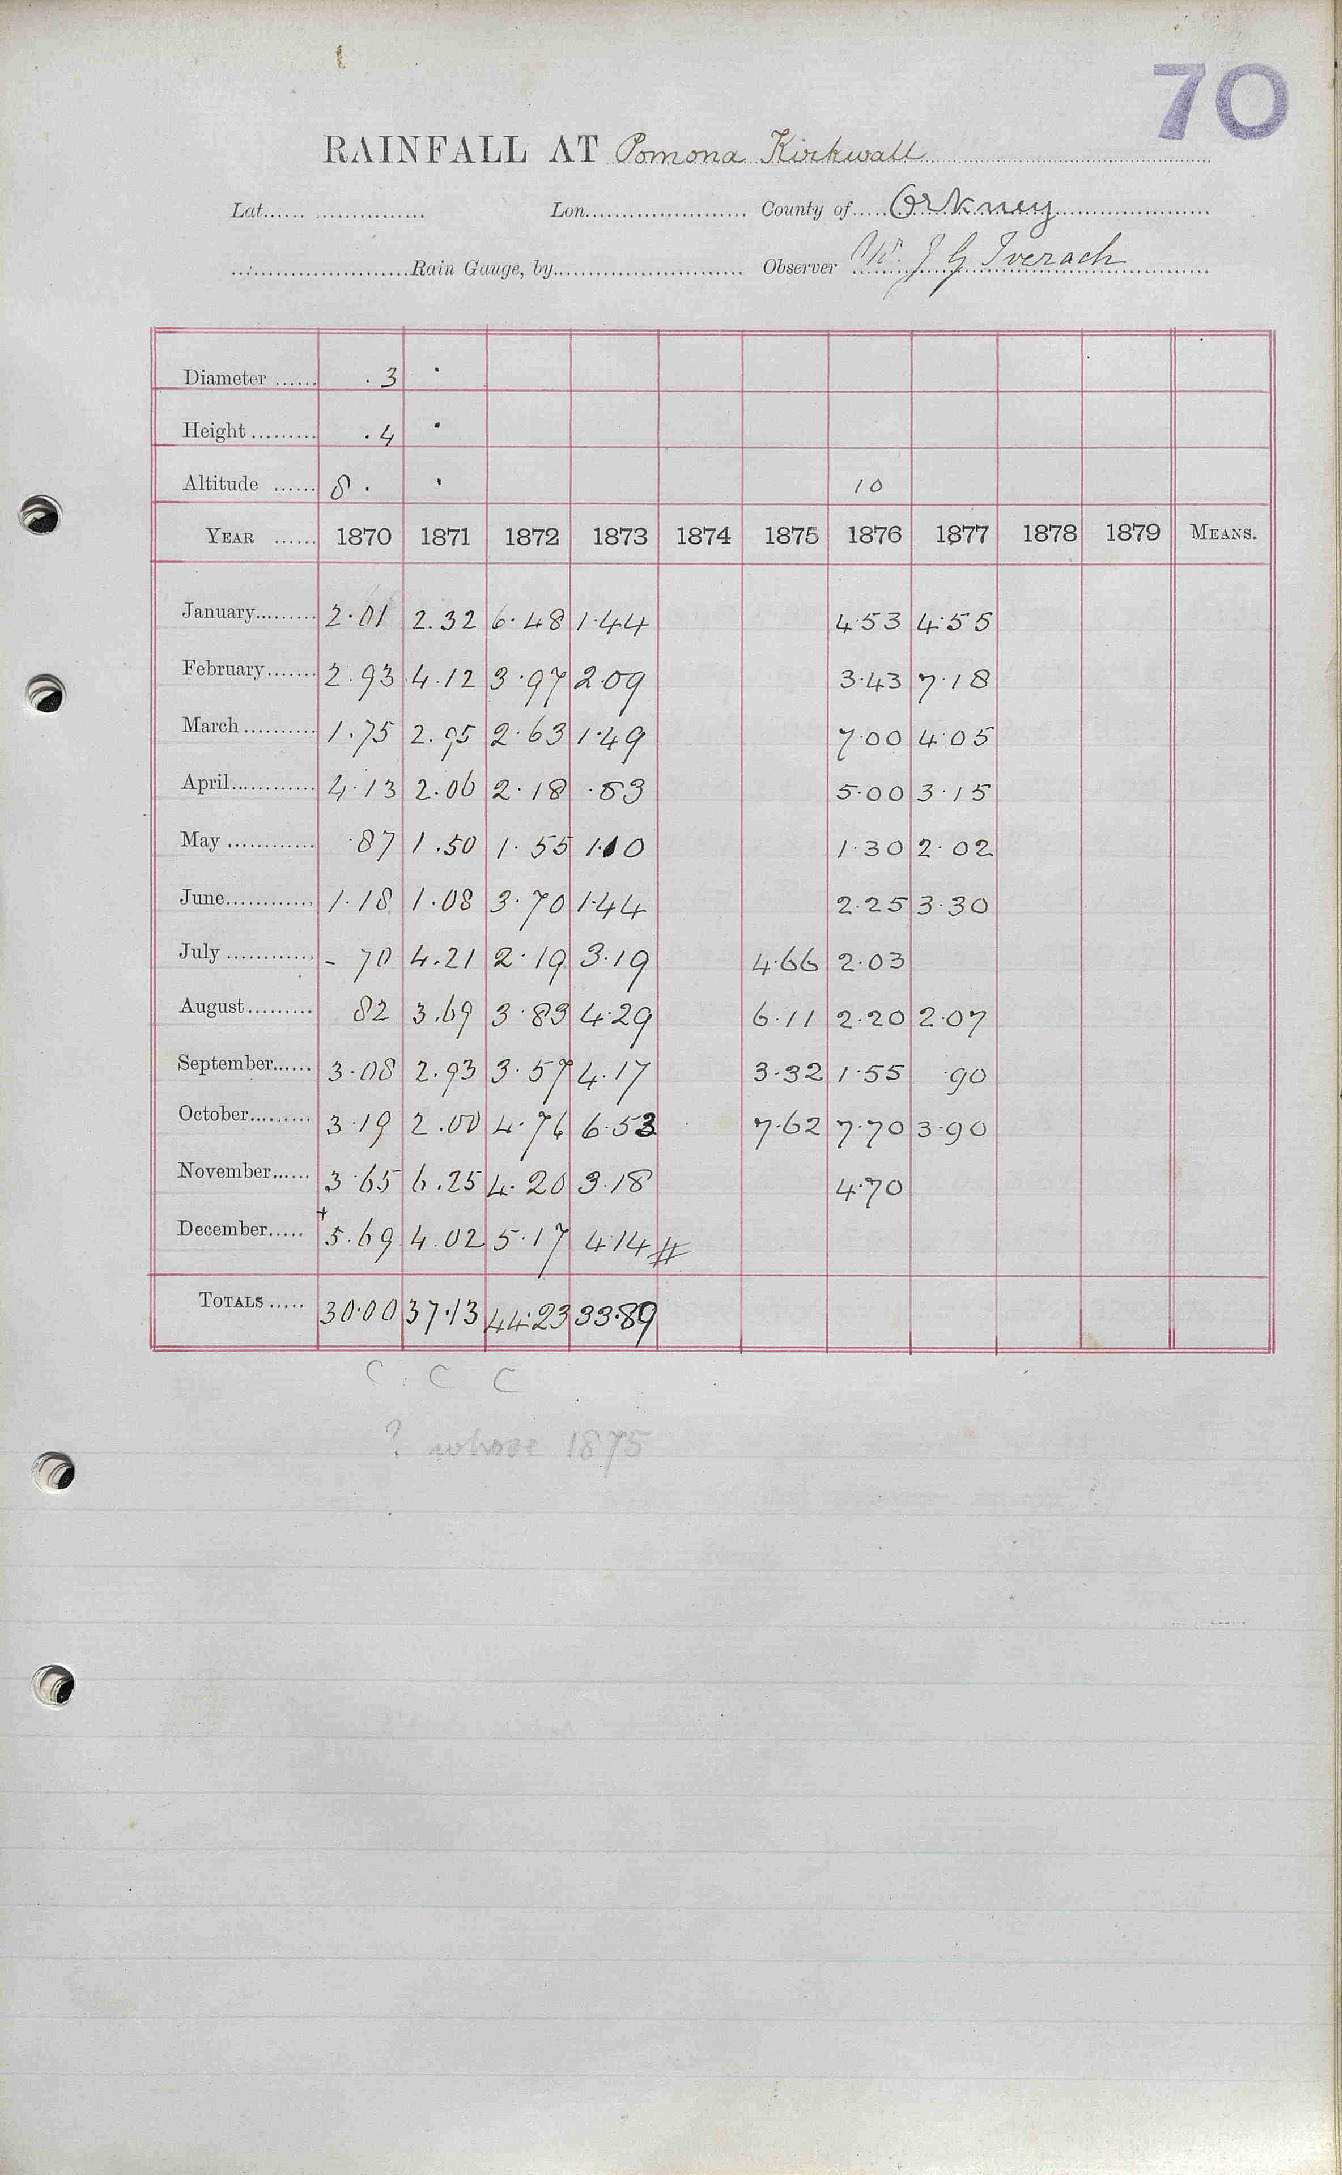 70
RAINFALL AT Pomona Kirkwall
Lat. Lon. County of Orkney
Rain Gauge, by Observer W. J G Iverach
Diameter ...... .3 .
Height ......... .4 .
Altitude ...... 8. . 10
YEAR ...... 1870 1871 1872 1873 1874 1875 1876 1877 1878 1879 MEANS.
January......... 2.01 2.32 6.48 1.44 4.53 4.55
February....... 2.93 4.12 3.97 2.09 3.43 7.18
March.......... 1.75 2.95 2.63 1.49 7.00 4.05
April............ 4.13 2.06 2.18 .83 5.00 3.15
May ............ .87 1.50 1.55 1.10 1.30 2.02
June............ 1.18 1.08 3.70 1.44 2.25 3.30
July ............ - 70 4.21 2.19 3.19 4.66 2.03
August......... 82 3.69 3.83 4.29 6.11 2.20 2.07
September...... 3.08 2.93 3.57 4.17 3.32 1.55 .90
October......... 3.19 2.00 4.76 6.53 7.62 7.70 3.90
November...... 3.65 6.25 4.20 3.18 4.70
December..... +5.69 4.02 5.17 4.14 #
TOTALS ..... 30.00 37.13 44.23 33.89
C. C C
? whose 1875